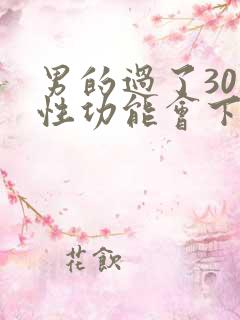 男的過了30
性功能會下
花飲